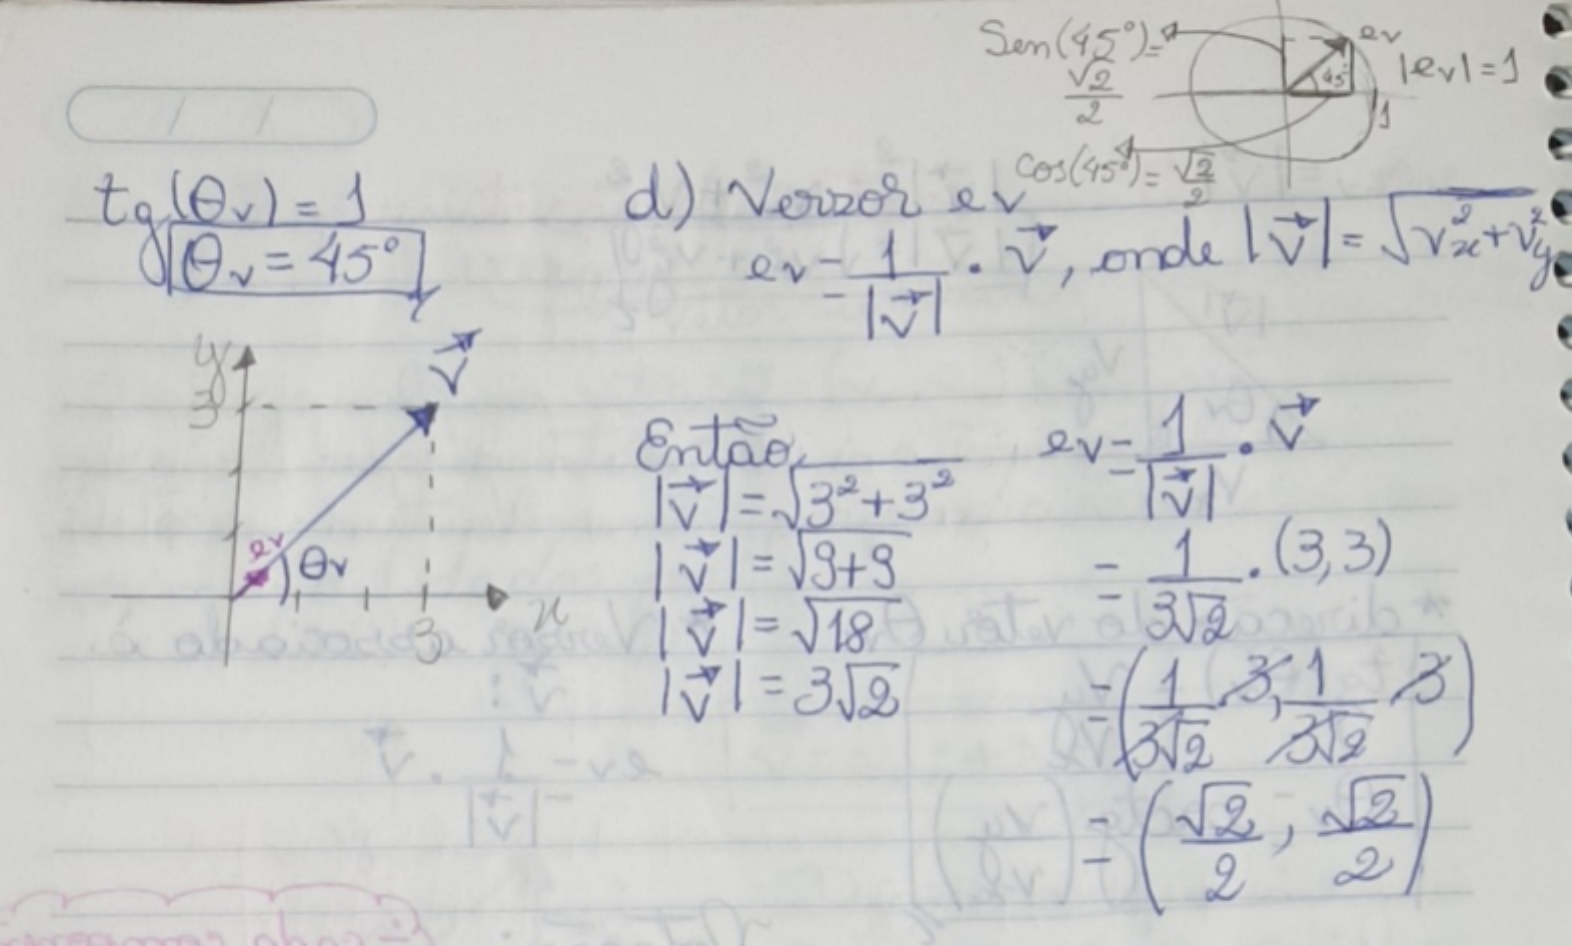 Sen(45°)=
√2/2
ev
45°
|ev|=1
1
cos(45°)=√2/2
tg(θv)=1
θv=45°
d) Verzor ev
ev=1/|v⃗| · v⃗, onde |v⃗|=√(vx²+vy²)
y
3
v⃗
ev
θv
3
x
Então,
|v⃗|=√(3²+3²)
|v⃗|=√(9+9)
|v⃗|=√18
|v⃗|=3√2
ev=1/|v⃗| · v⃗
=1/(3√2) · (3,3)
=(1/(3√2) · 3, 1/(3√2) · 3)
=(√2/2, √2/2)